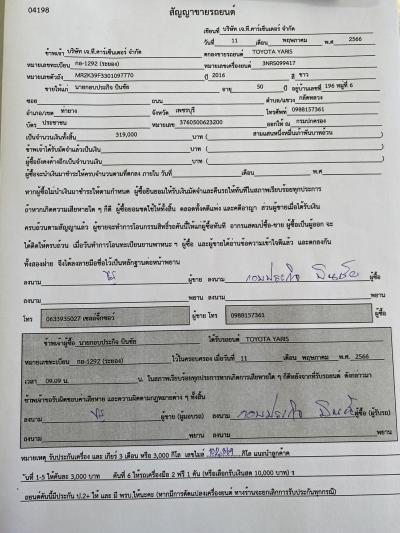 04198
สัญญาขายรถยนต์
เขียนที่ บริษัท เจ.ที.คาร์เซ็นเตอร์ จำกัด
วันที่ 11 เดือน พฤษภาคม พ.ศ. 2566
ข้าพเจ้า บริษัท เจ.ที.คาร์เซ็นเตอร์ จำกัด ตกลงขายรถยนต์ TOYOTA YARIS
หมายเลขทะเบียน กอ-1292 (ระยอง) หมายเลขเครื่องยนต์ 3NRS099417
หมายเลขตัวถัง MR2K39F3301097770 ปี 2016 สี ขาว
ขายให้แก่ นายกอบประกิจ ปินชัย อายุ 50 ปี อยู่บ้านเลขที่ 196 หมู่ที่ 6
ซอย ถนน ตำบล/แขวง กลัดหลวง
อำเภอ/เขต ท่ายาง จังหวัด เพชรบุรี โทรศัพท์ 0988157361
บัตร ประชาชน หมายเลข 3760500623200 ออกให้ ณ กรมปกครอง
เป็นจำนวนเงินทั้งสิ้น 319,000 บาท ( สามแสนหนึ่งหมื่นเก้าพันบาทถ้วน )
ข้าพเจ้าได้รับมัดจำแล้วเป็นเงิน บาท ( )
ผู้ซื้อยังคงค้างอีกเป็นจำนวนเงิน บาท ( )
ผู้ซื้อจะนำเงินมาชำระให้ครบจำนวนตามที่ตกลง ภายใน วันที่ เดือน พ.ศ.
หากผู้ซื้อไม่นำเงินมาชำระให้ตามกำหนด ผู้ซื้อยินยอมให้ริบเงินมัดจำและคืนรถให้ทันทีในสภาพเรียบร้อยทุกประการ
ถ้าหากเกิดความเสียหายใด ๆ ก็ดี ผู้ซื้อยอมชดใช้ให้ทั้งสิ้น ตลอดทั้งคดีแพ่ง และคดีอาญา ส่วนผู้ขายเมื่อได้รับเงิน
ครบถ้วนตามสัญญาแล้ว ผู้ขายจะทำการโอนกรรมสิทธิ์รถคันนี้ให้แก่ผู้ซื้อทันที อากรแสตมป์ซื้อ-ขาย ผู้ซื้อเป็นผู้ออก จะ
ได้คิดให้ครบถ้วน เมื่อวันทำการโอนทะเบียนยานพาหนะ ฯ ผู้ซื้อ และผู้ขายได้อ่านข้อความเข้าใจดีแล้ว และตกลงกัน
ทั้งสองฝ่าย จึงได้ลงลายมือชื่อไว้เป็นหลักฐานต่อหน้าพยาน
ลงนาม ผู้ขาย ลงนาม กอบประกิจ ปินชัย ผู้ซื้อ
ลงนาม พยาน ลงนาม พยาน
โทร 0633935027 เซลล์จิ๊กซอว์ ผู้ขาย โทร 0988157361 ผู้ซื้อ
ข้าพเจ้าผู้ซื้อ นายกอบประกิจ ปินชัย ได้รับรถยนต์ TOYOTA YARIS
หมายเลขทะเบียน กอ-1292 (ระยอง) ไว้ในครอบครอง เมื่อวันที่ 11 เดือน พฤษภาคม พ.ศ. 2566
เวลา 09.09 น. น. ในสภาพเรียบร้อยทุกประการหากเกิดการเสียหายใด ๆ ก็ดีหลังจากที่รับรถยนต์ ดังกล่าวมา
ข้าพเจ้าขอรับผิดชอบค่าเสียหาย และความผิดตามกฎหมายต่าง ๆ ทั้งสิ้น
ลงนาม ผู้ขาย (ผู้มอบรถ) ลงนาม กอบประกิจ ปินชัย ผู้ซื้อ (ผู้รับรถ)
ลงนาม พยาน ลงนาม พยาน
หมายเหตุ รับประกันเครื่อง และ เกียร์ 3 เดือน หรือ 3,000 กิโล เลขไมล์ กิโล แนะนำลูกค้าต
ันที่ 1-5 ให้คันละ 3,000 บาท คันที่ 6 ให้รถเครื่องมือ 2 ฟรี 1 คัน (หรือเลือกรับเงินสด 10,000 บาท) ร
ถยนต์คันนี้มีประกัน ป.2+ ให้ และ มี พรบ.ให้นะคะ (หากมีการดัดแปลงเครื่องยนต์ ทางร้านจะยกเลิกการรับประกันทุกกรณี)